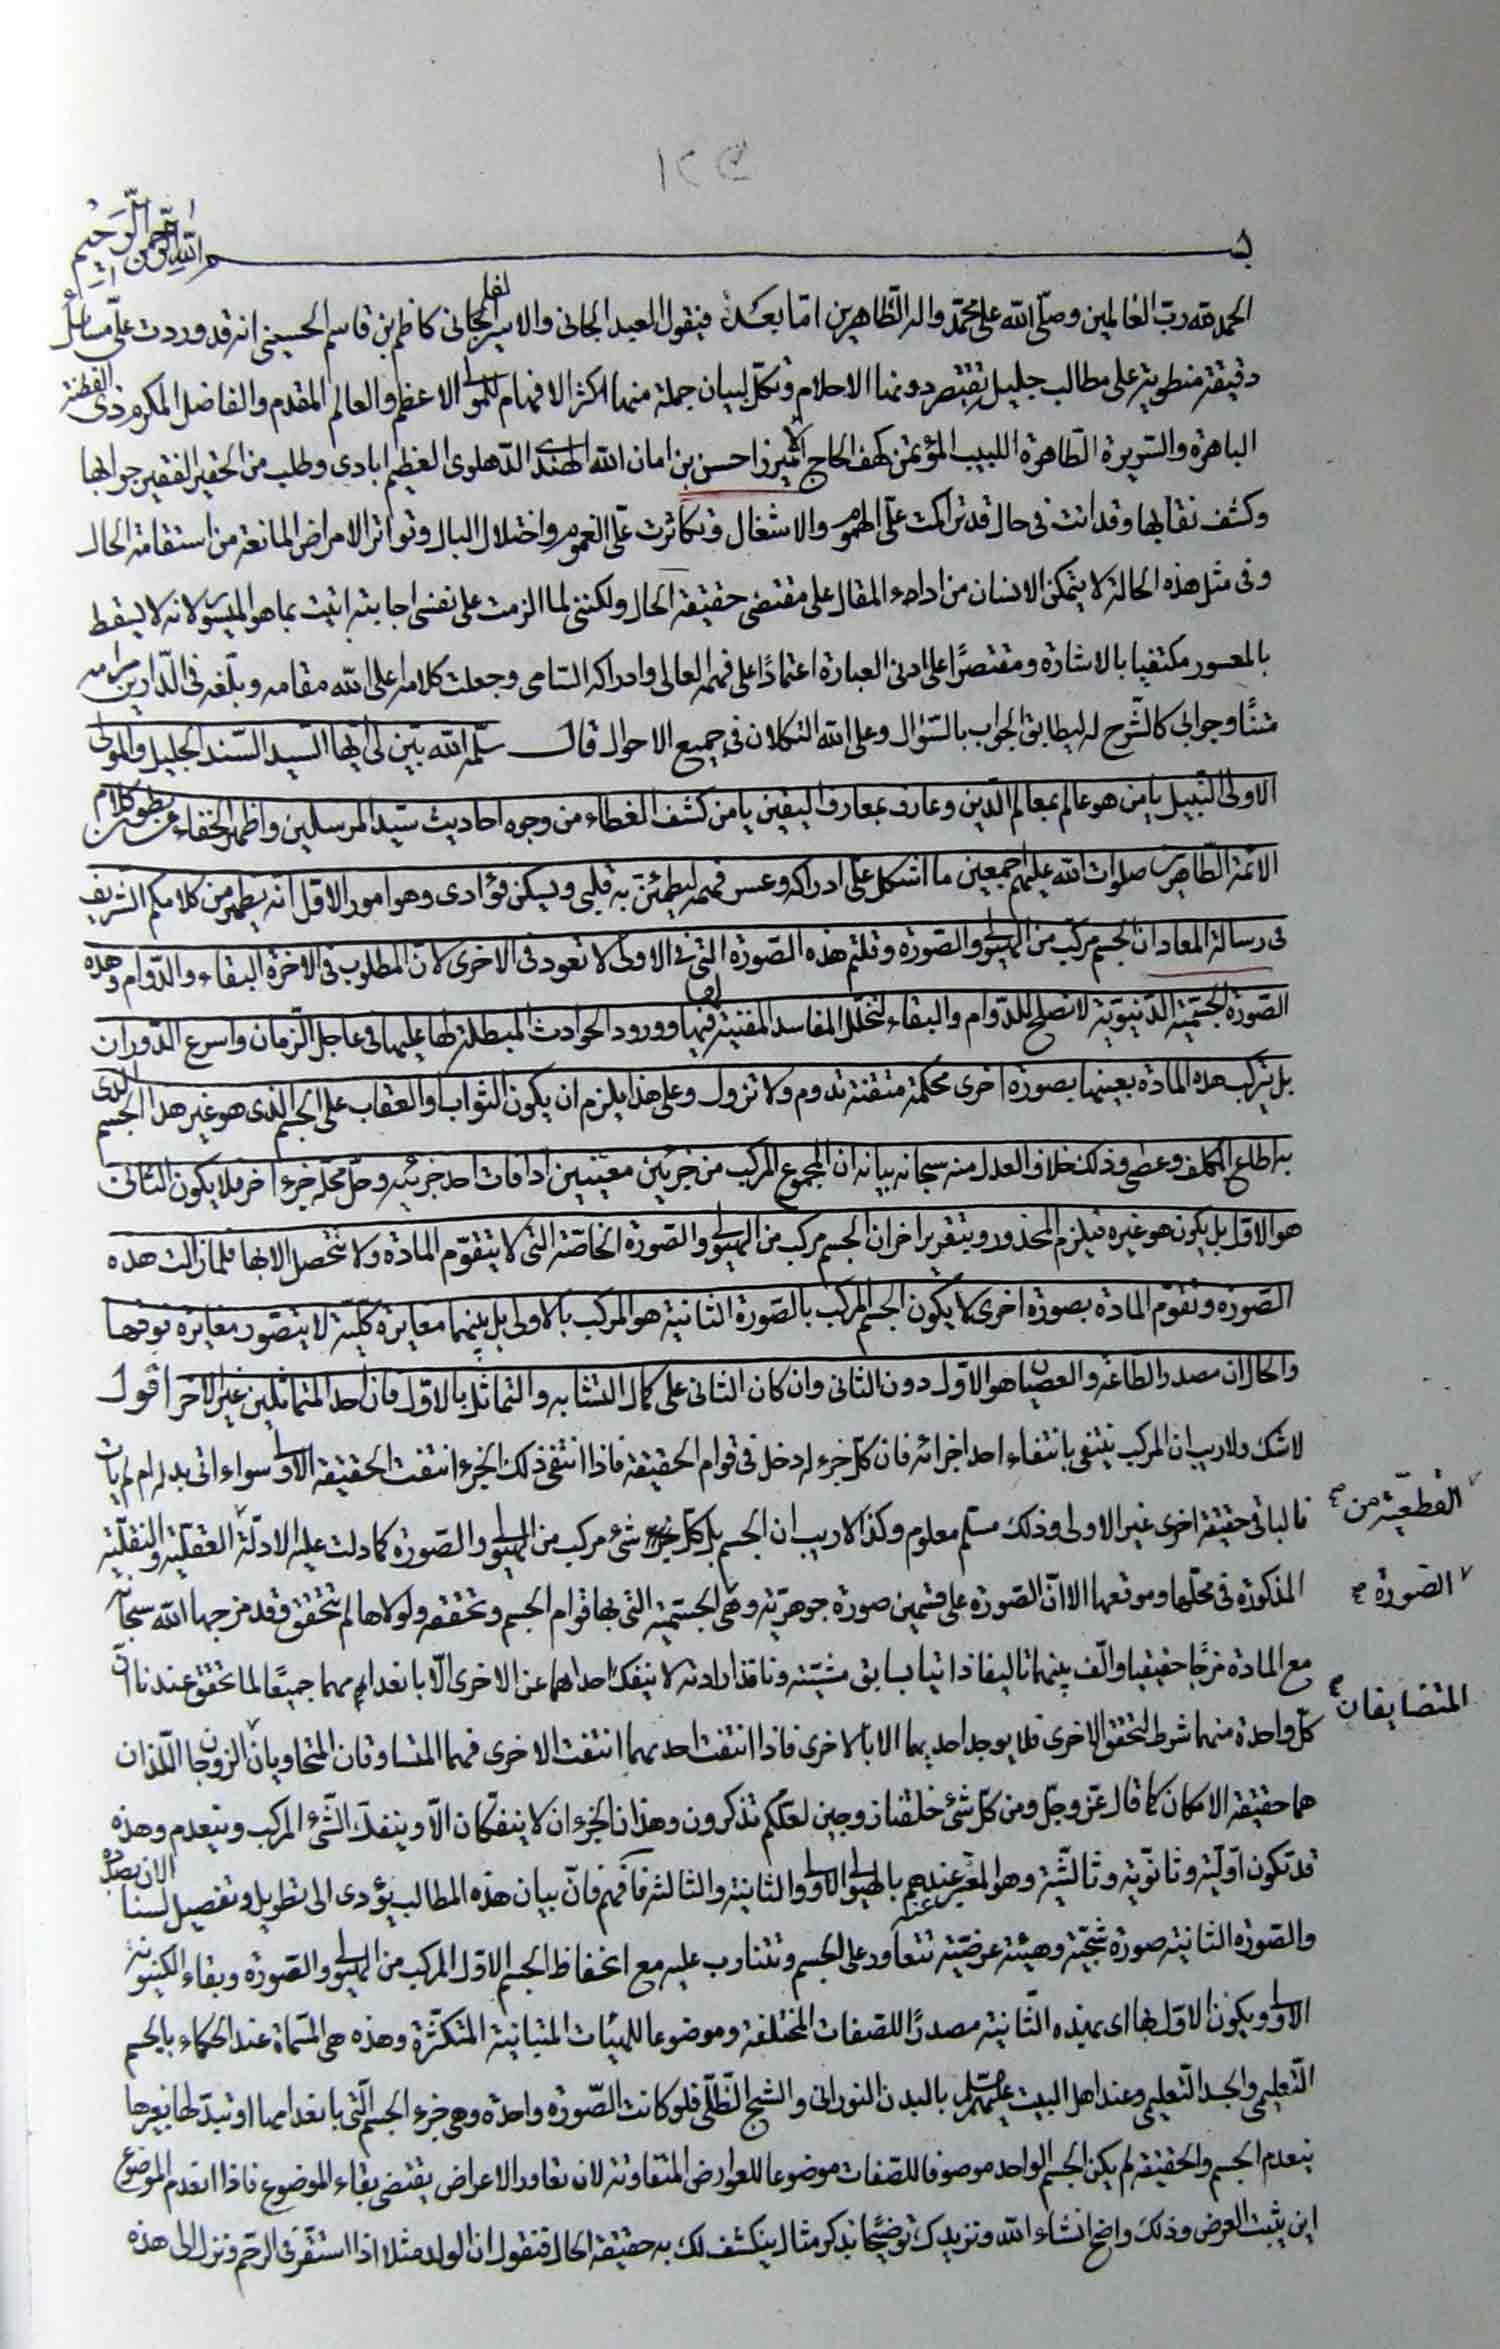 بسم الله الرحمن الرحيم
الحمد لله رب العالمين وصلى الله على محمد واله الطاهرين اما بعد فيقول العبد الجاني والاسير الفاني كاظم بن قاسم الحسيني انه قد وردت علي مسائل
دقيقة منطوية على مطالب جليلة تقتصر دونها الاحلام وتكل لبيان جملة منها اكثر الافهام للمولى الاعظم والعالم المقدم والفاضل المكرم ذي الفطنة
الباهرة والسريرة الطاهرة اللبيب المؤتمن كهف الحاج الميرزا حسن بن امان الله الهندي الدهلوي العظيم ابادي وطلب من الحقير الفقير جوابها
وكشف نقابها وقد اتت في حال قد تراكمت علي الهموم والاشغال وتكاثرت علي الغموم واختلال البال وتواتر الامراض المانعة من استقامة الحال
وفي مثل هذه الحالة لا يتمكن الانسان من اداء المقال على مقتضى حقيقة الحال ولكنني لما الزمت على نفسي اجابته اتيت بما هو الميسور لانه لا يسقط
بالمعسور مكتفيا بالاشارة ومقتصرًا على ادنى العبارة اعتمادًا على فهمه العالي وادراكه السامي وجعلت كلامه اعلى الله مقامه وبلغه في الدارين مرامه
متنًا وجوابي كالشرح له ليطابق الجواب بالسؤال وعلى الله التكلان في جميع الاحوال قال سلمه الله بين لي ايها السيد السند الجليل والمولى
الاولى النبيل يا من هو عالم بمعالم الدين وعارف بمعارف اليقين يا من كشف الغطاء من وجوه احاديث سيد المرسلين واظهر الخفاء عن بطون كلام
الائمة الطاهرين صلوات الله عليهم اجمعين ما اشكل علي ادراكه وعسر فهمه ليطمئن به قلبي ويسكن فؤادي وهو امور الاول انه يظهر من كلامكم الشريف
في رسالة المعاد ان الجسم مركب من الهيولى والصورة وقلتم هذه الصورة التي في الاولى لا تعود في الاخرى لان المطلوب في الاخرة البقاء والدوام وهذه
الصورة الجسمية الدنيوية لا تصلح للدوام والبقاء لتخلل المفاسد المفنية لها فيها وورود الحوادث المبطلة لها عليها في عاجل الزمان واسرع الدوران
بل يتركب هذه المادة بعينها بصورة اخرى محكمة متقنة تدوم ولا تزول وعلى هذا يلزم ان يكون الثواب والعقاب على الجسم الذي هو غير هذا الجسم الذي
به اطاع المكلف وعصى وذلك خلاف العدل منه سبحانه بيانه ان المجموع المركب من جزئين معينين اذا فات احد جزئيه وحل محله جزء اخر فلا يكون الثاني
هو الاول بل يكون هو غيره فيلزم المحذور وبتقرير اخر ان الجسم مركب من الهيولى والصورة الخاصة التي لا يتقوم المادة ولا تتحصل الا بها فلما زالت هذه
الصورة وتقوم المادة بصورة اخرى لا يكون الجسم المركب بالصورة الثانية هو المركب بالاولى بل بينهما مغايرة كلية لا يتصور مغايرة فوقها
والحال ان مصدر الطاعة والعصيان هو الاول دون الثاني وان كان الثاني على كمال التشابه والتماثل بالاول فان احد المتماثلين غير الاخر اقول
لا شك ولا ريب ان المركب ينتفي بانتفاء احد اجزائه فان كل جزء له دخل في قوام الحقيقة فاذا انتفى ذلك الجزء انتفت الحقيقة الاولى سواء اتى بدله ام لم يات
فالباقي حقيقة اخرى غير الاولى وذلك مسلم معلوم وكذا لا ريب ان الجسم بل كل شئ مركب من الهيولى والصورة كما دلت عليه الادلة القطعية من العقلية والنقلية
المذكورة في محلها وموقعها الا ان الصورة على قسمين صورة جوهرية وهي الصورة الجسمية التي بها قوام الجسم وتحققه ولولاها لم يتحقق وقد مزجها الله سبحانه
مع المادة مزجًا حقيقيا والف بينهما تاليفا ذاتيا بسابق مشيته ونافذ ارادته لا ينفك احداهما عن الاخرى الا بانعدامهما جميعًا لما تحقق عندنا ان
كل واحدة منهما شرط لتحقق الاخرى فلا يوجد احديهما الا بالاخرى فاذا انتفت احديهما انتفت الاخرى فهما المتساوقان المتحاويان المتضايفان الزوجان اللذان
هما حقيقة الامكان كما قال عز وجل ومن كل شئ خلقنا زوجين لعلكم تذكرون وهذان الجزءان لا ينفكان الا وينفك الشئ المركب وينعدم وهذه
قد تكون اولية وثانوية وثالثية وهو المعبر عنه عندهم بالهيولى الاولى والثانية والثالثة فافهم فان بيان هذه المطالب يؤدي الى تطويل وتفصيل لسنا الان بصدده
والصورة الثانية صورة شبحية وهيئة عرضية تتعاور على الجسم وتتناوب عليه مع انحفاظ الجسم الاول المركب من الهيولى والصورة وبقاء الكينونة
الاولى ويكون الاول بها اي بهذه الثانية مصدرًا للصفات المختلفة وموضوعا للهيئات المتباينة المتكثرة وهذه هي المسماة عند الحكماء بالجسم
التعليمي والجسد التعليمي وعند اهل البيت عليهم السلم بالبدن النوراني والشبح الظلي فلو كانت الصورة واحدة وهي جزء الجسم التي بانعدامها او تبدلها بغيرها
ينعدم الجسم والحقيقة لم يكن الجسم الواحد موصوفا للصفات موضوعا للعوارض المتفاوتة لان تعاور الاعراض يقتضي بقاء الموضوع فاذا انعدم الموضوع
اين يثبت العرض وذلك واضح انشاء الله ونزيدك توضيحًا بذكر مثال لينكشف لك به حقيقة الحال فنقول ان الولد مثلا اذا استقر في الرحم ونزل الى هذه